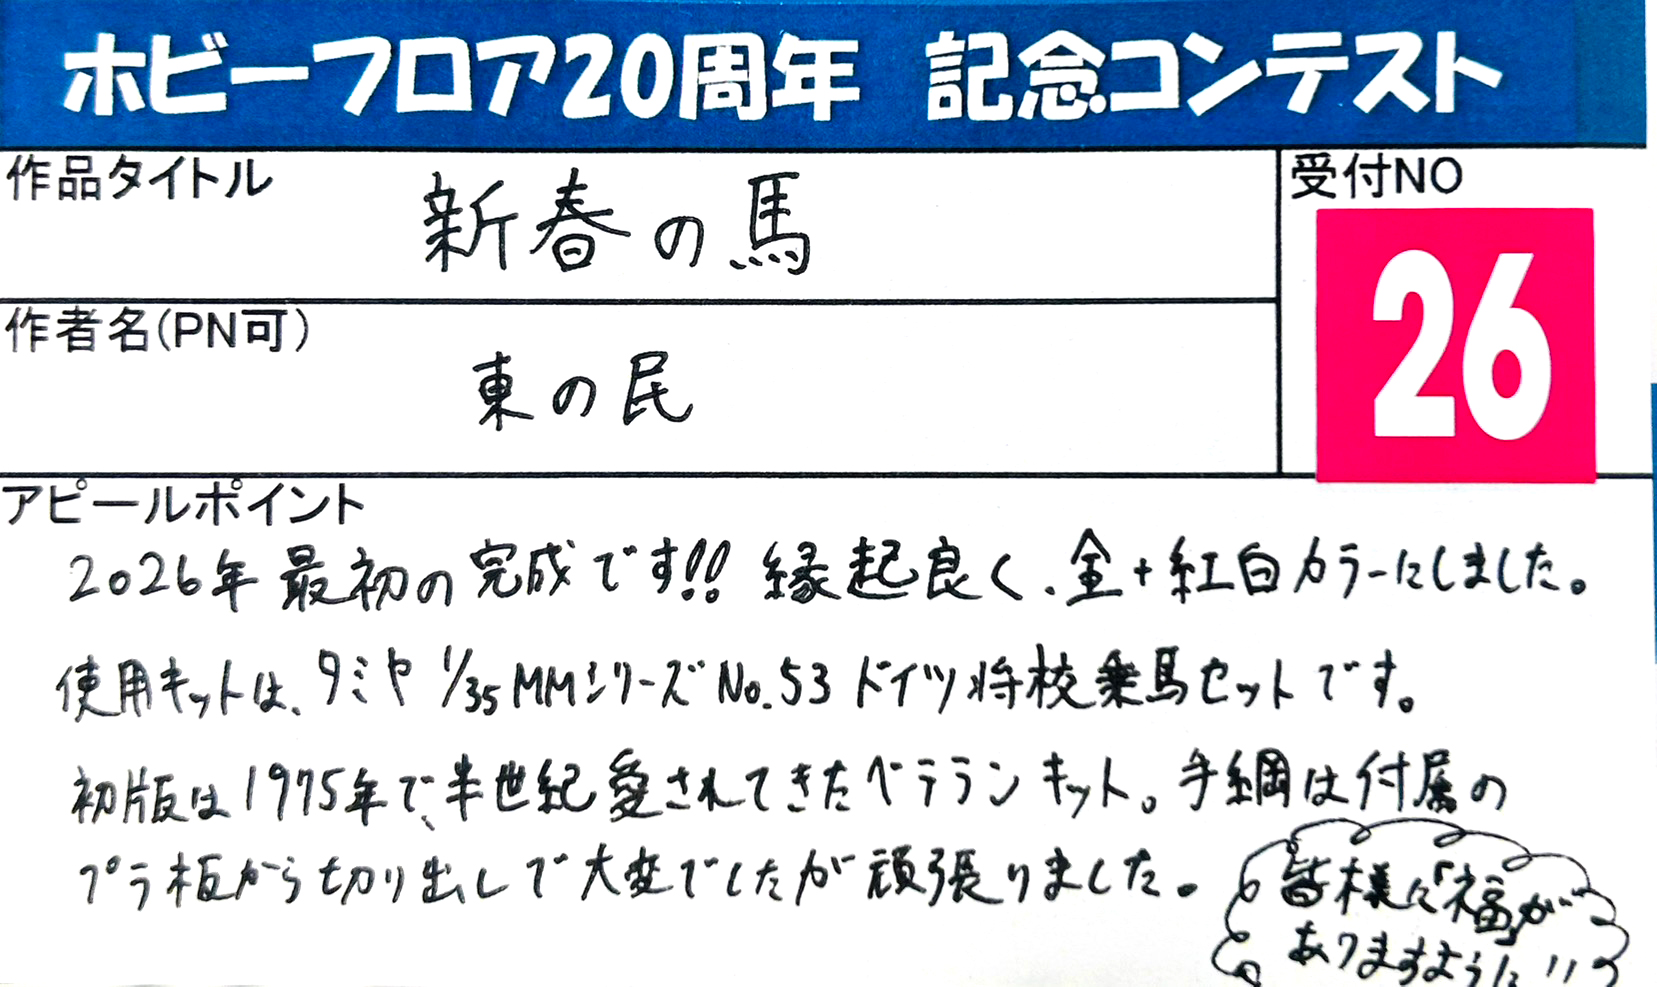 ホビーフロア20周年 記念コンテスト
作品タイトル
新春の馬
受付NO
26
作者名(PN可)
東の民
アピールポイント
2026年最初の完成です!! 縁起良く、金+紅白カラーにしました。
使用キットは、タミヤ 1/35 MMシリーズ No.53 ドイツ将校乗馬セットです。
初版は1975年で、半世紀愛されてきたベテランキット。手綱は付属の
プラ板から切り出しで大変でしたが頑張りました。
皆様に「福」が
ありますように!!